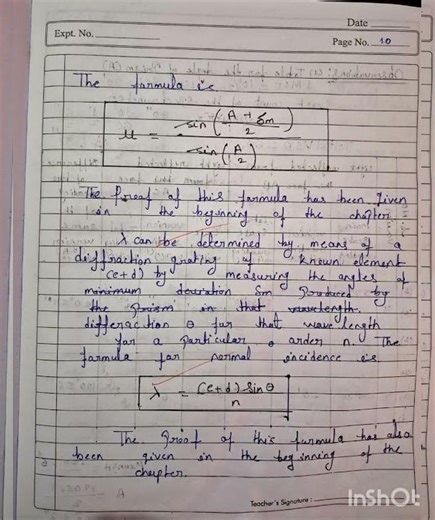 Date
Expt. No.
Page No. 10
The formula is
μ = sin(A + δm / 2) / sin(A / 2)
The Proof of this formula has been given
in the beginning of the chapter
λ can be determined by means of a
diffraction grating of known element
(e+d) by measuring the angles of
minimum deviation δm produced by
the Prism in that wavelength.
diffraction θ for that wave length
for a particular order n. The
formula for normal incidence is
λ = (e+d) sinθ / n
The Proof of this formula has also
been given in the beginning of the
chapter.
Teacher's Signature :
InShOt